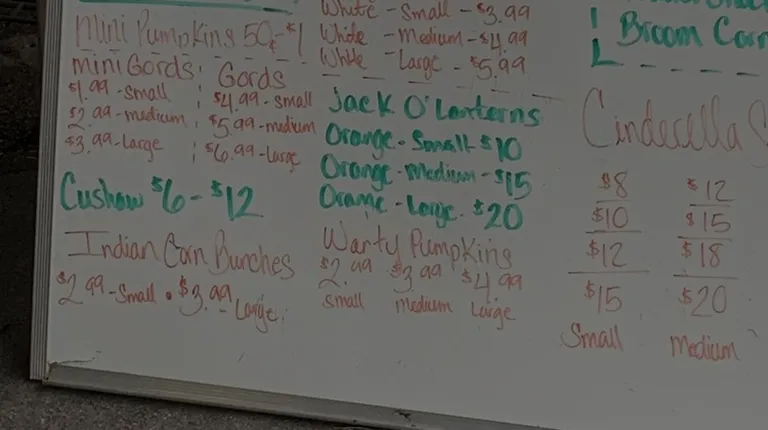 Mini Pumpkins 50¢-$1
mini Gords
$1.99-Small
$2.99-medium
$3.99-Large
Gords
$4.99-small
$5.99-medium
$6.99-Large
Cushaw $6-$12
Indian Corn Bunches
$2.99-Small • $3.99 Large
White - Small - $3.99
White - Medium - $4.99
White - Large - $5.99
Jack O'Lanterns
Orange - Small - $10
Orange - Medium - $15
Orange - Large - $20
Warty Pumpkins
$2.99 $3.99 $4.99
small medium Large
Broom Corn
Cinderella
$8 $12
$10 $15
$12 $18
$15 $20
Small Medium